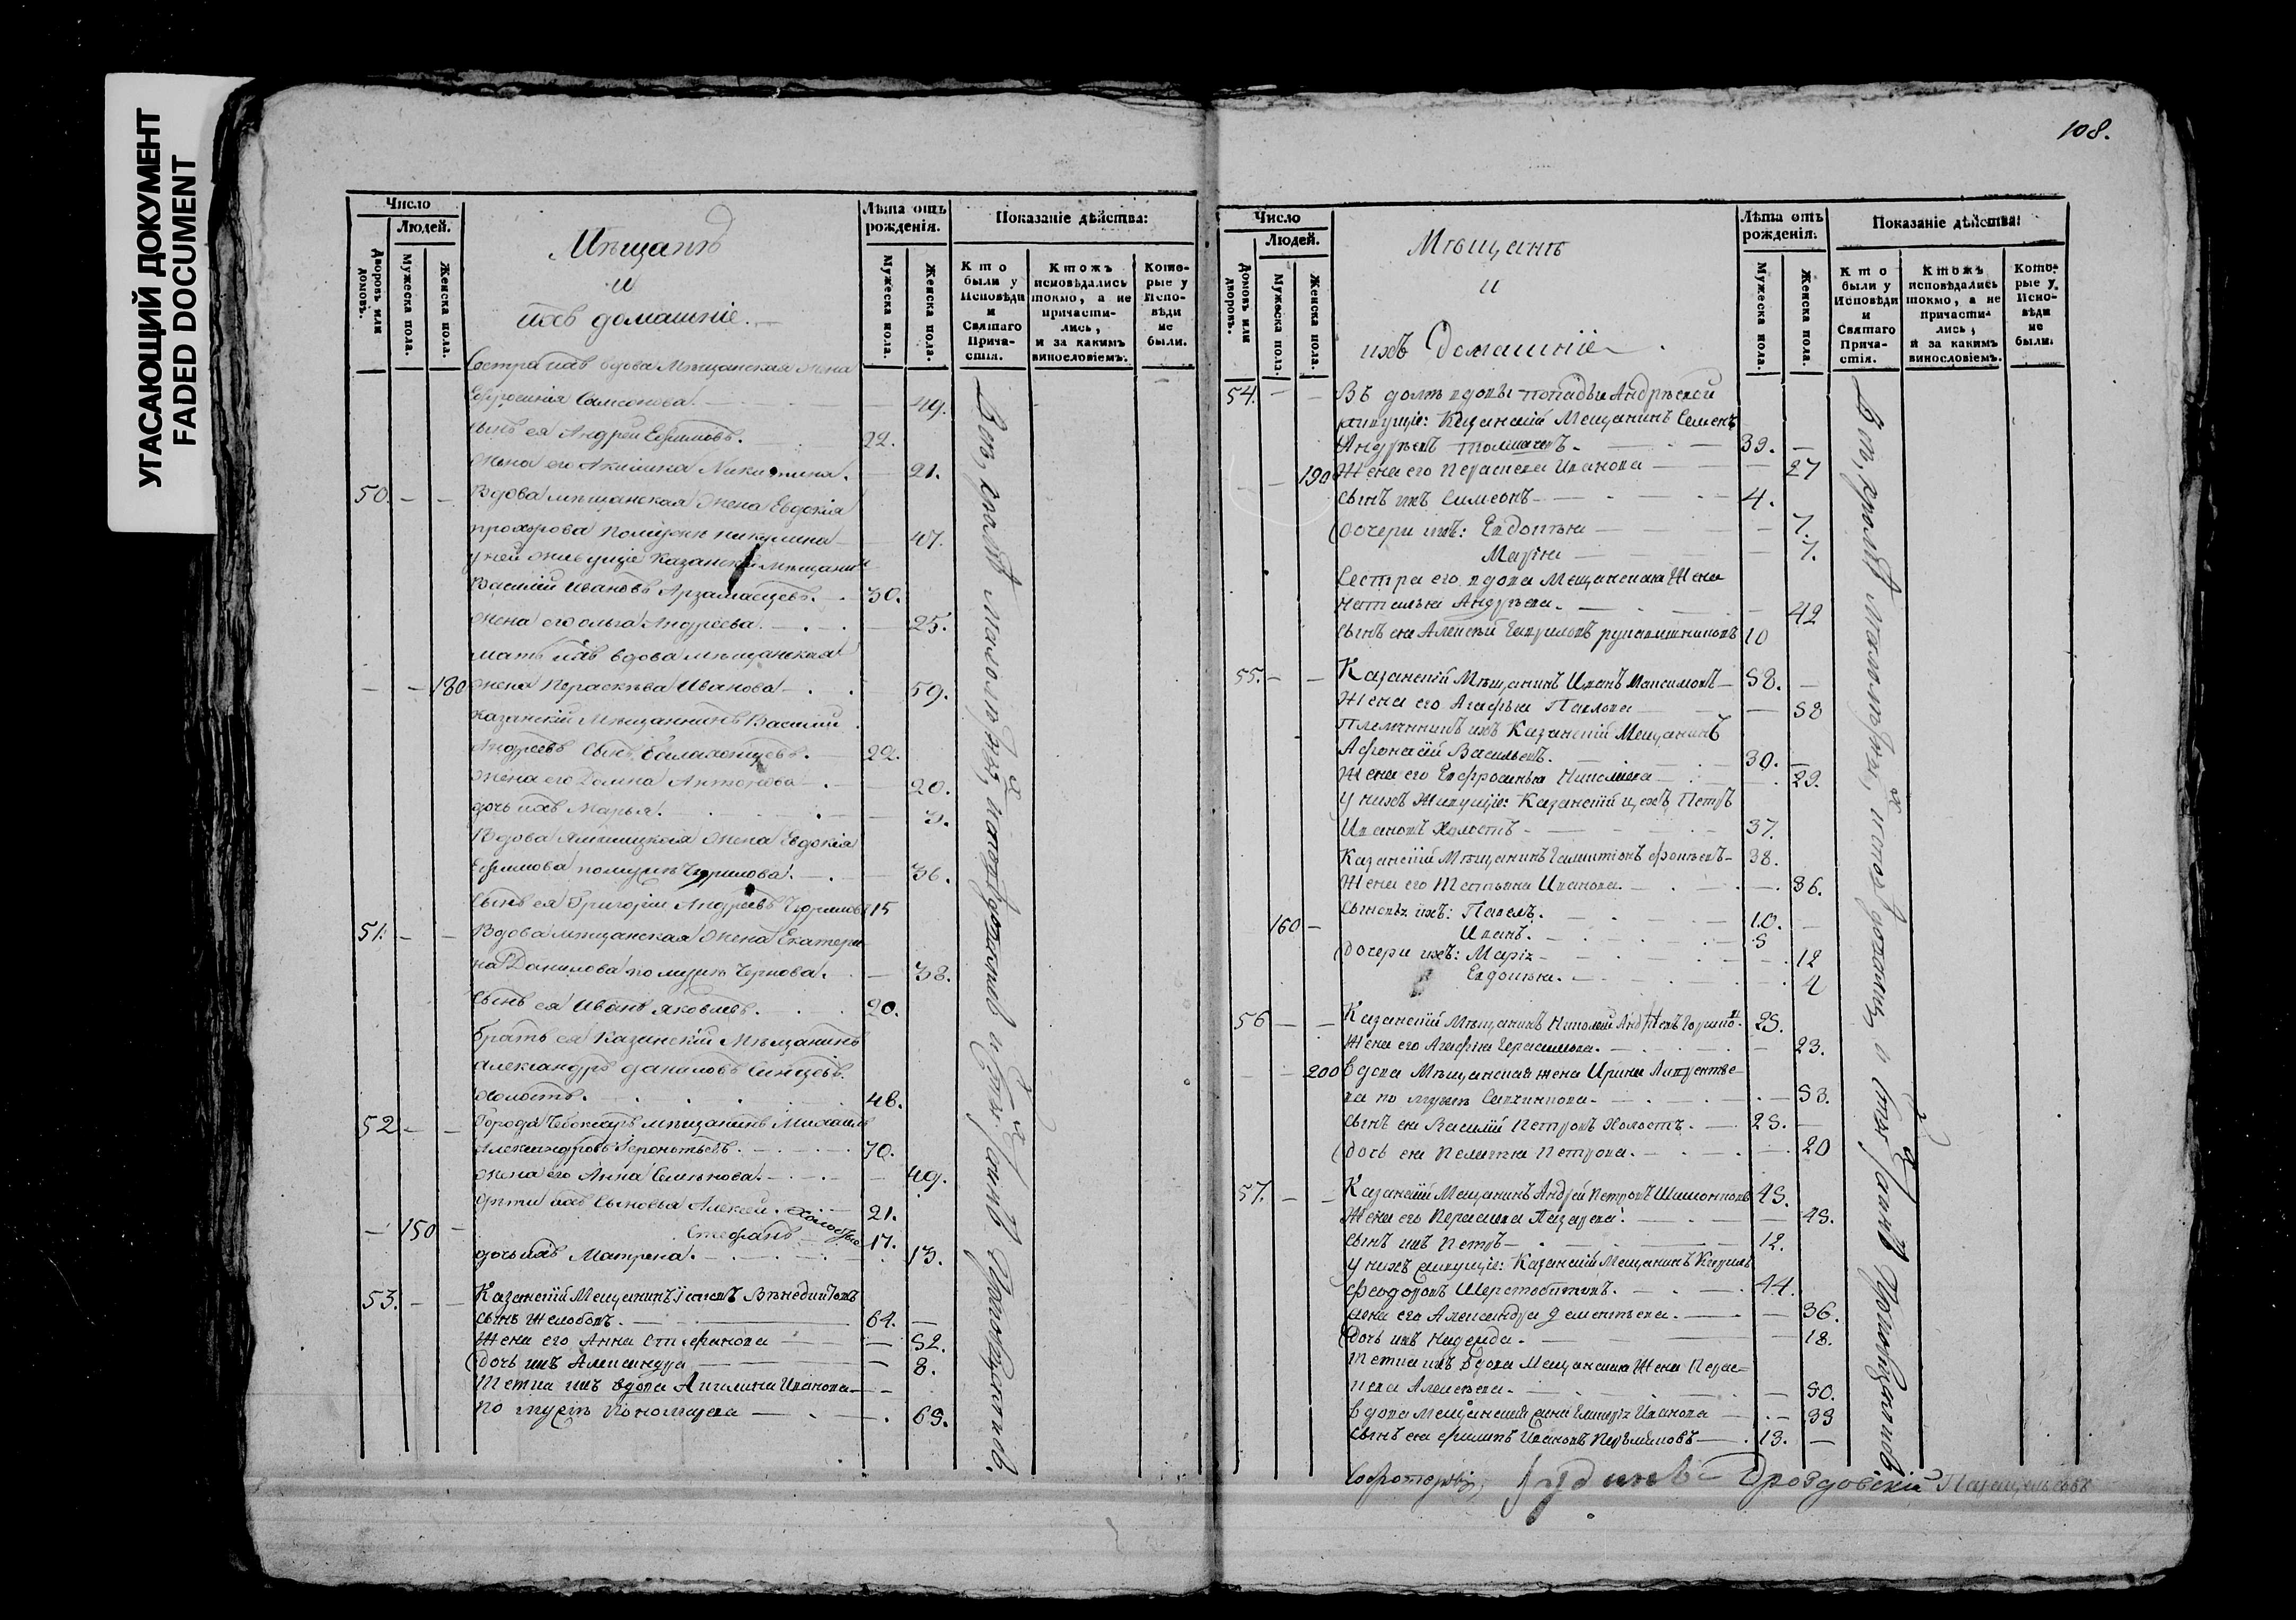 УГАСАЮЩИЙ ДОКУМЕНТ
FADED DOCUMENT
108.
Число
Людей.
Дворовъ или домовъ.
Мужеска пола.
Женска пола.
Мѣщанъ
и
ихъ домашніе.
Лѣта отъ рожденія.
Мужеска пола.
Женска пола.
Показаніе дѣйства:
Кто были у Исповѣди и Святаго Причастія.
Ктожъ исповѣдались токмо, а не причастились, и за какимъ винословіемъ.
Которые у Исповѣди не были.
Сестра ихъ вдова Мѣщанская жена
Ефросинія Самсонова. 49.
сынъ ея Андрей Ефимовъ. 22.
жена его Акилина Никитина. 21.
50. Вдова мѣщанская жена Евдокія
прохорова по мужѣ никулина 47.
у ней живущіе Казанскій Мѣщанинъ
Василій Ивановъ Арзамасцевъ. 30.
жена его ольга Андреева. 25.
мать ихъ вдова мѣщанская
180 жена Параскѣва Иванова 59.
Казанскій Мѣщанинъ Василій
Андреевъ Сынъ Балахонцевъ. 22.
жена его Домна Антонова 20.
дочь ихъ Марья. 3.
Вдова жена Евдокія
Ефимова по мужѣ Чурилова. 36.
сынъ ея Григорій Андреевъ Чуриловъ 15
51. Вдова мѣщанская жена Екатери-
на Данилова по мужѣ Чернова. 38.
Сынъ ея Иванъ Яковлевъ. 20.
братъ ея Казанскій Мѣщанинъ
Александръ даниловъ Синцевъ.
холостъ. 48.
52 Города Чебоксаръ мѣщанинъ Михаилъ
Александровъ Терентьевъ. 70.
жена его Анна Семенова. 49.
дѣти ихъ Сыновья Алексѣй. холостые 21.
150 Стефанъ 17.
дочь ихъ Матрена. 13.
53. Казанскій Мещанинъ Венедиктовъ
сынъ Желобовъ. 64.
Жена его Анна Стефанова 52.
Дочь ихъ Александра 8.
Тетка ихъ вдова Ангелина Иванова
по мужѣ Пономарева 65.
Всѣ, кромѣ малолѣтныхъ, исповѣдались и Св. Таинъ причащались.
Число
Людей.
Домовъ или дворовъ.
Мужеска пола.
Женска пола.
Мѣщанъ
и
ихъ Домашніе
Лѣта отъ рожденія.
Мужеска пола.
Женска пола.
Показаніе дѣйства:
Кто были у Исповѣди и Святаго Причастія.
Ктожъ исповѣдались токмо, а не причастились, и за какимъ винословіемъ.
Которые у Исповѣди не были.
54. Въ домѣ вдовы попадьи Андреевой
живущіе: Казанскій Мещанинъ Семенъ
Андреевъ Толмачевъ. 39.
190 Жена его Параскева Иванова 27
сынъ ихъ Симеонъ 4.
Дочери ихъ: Евдокѣя 7.
Марѣя 7.
Сестра его вдова Мещанская Жена
Наталья Андреева. 42
сынъ ея Алексѣй Гавриловъ рукавишниковъ 10
55. Казанскій Мѣщанинъ Иванъ Максимовъ 58.
Жена его Агафья Павлова 58
Племянникъ ихъ Казанскій Мещанинъ
Афонасій Васильевъ. 30.
Жена его Евфросинья Николаева 29.
У нихъ Живущіе: Казанскій цехъ Петръ
Ивановъ Холостъ 37.
Казанскій Мѣщанинъ 38.
Жена его Татьяна Иванова. 36.
160 Сыновья ихъ: Павелъ. 10.
Иванъ. 5
Дочери ихъ: Марія 12
Евдокѣя. 4
56 Казанскій Мѣщанинъ Николай Андреевъ 25.
Жена его Агафья Герасимова. 23.
200 Вдова Мѣщанская жена Ирина Лаврентье-
ва по мужѣ 53.
сынъ ея Василій Петровъ Холостъ. 25.
Дочь ея Пелагѣя Петрова. 20
57. Казанскій Мещанинъ Андрей Петровъ 45.
Жена его Параскева Лазарева. 45.
сынъ ихъ Петръ 12.
У нихъ живущіе: Казанскій Мещанинъ Кирилъ
Феодоровъ Шерстобитовъ. 44.
жена его Александра Дементьева. 36.
Дочь ихъ Надежда. 18.
Тетка ихъ вдова Мещанская Жена Парас-
кева Алексѣева. 50.
вдова Мещанская жена Иванова 39
сынъ ея Филипъ Ивановъ 13.
Всѣ, кромѣ малолѣтныхъ, исповѣдались и Св. Таинъ причащались
Дроздовскій